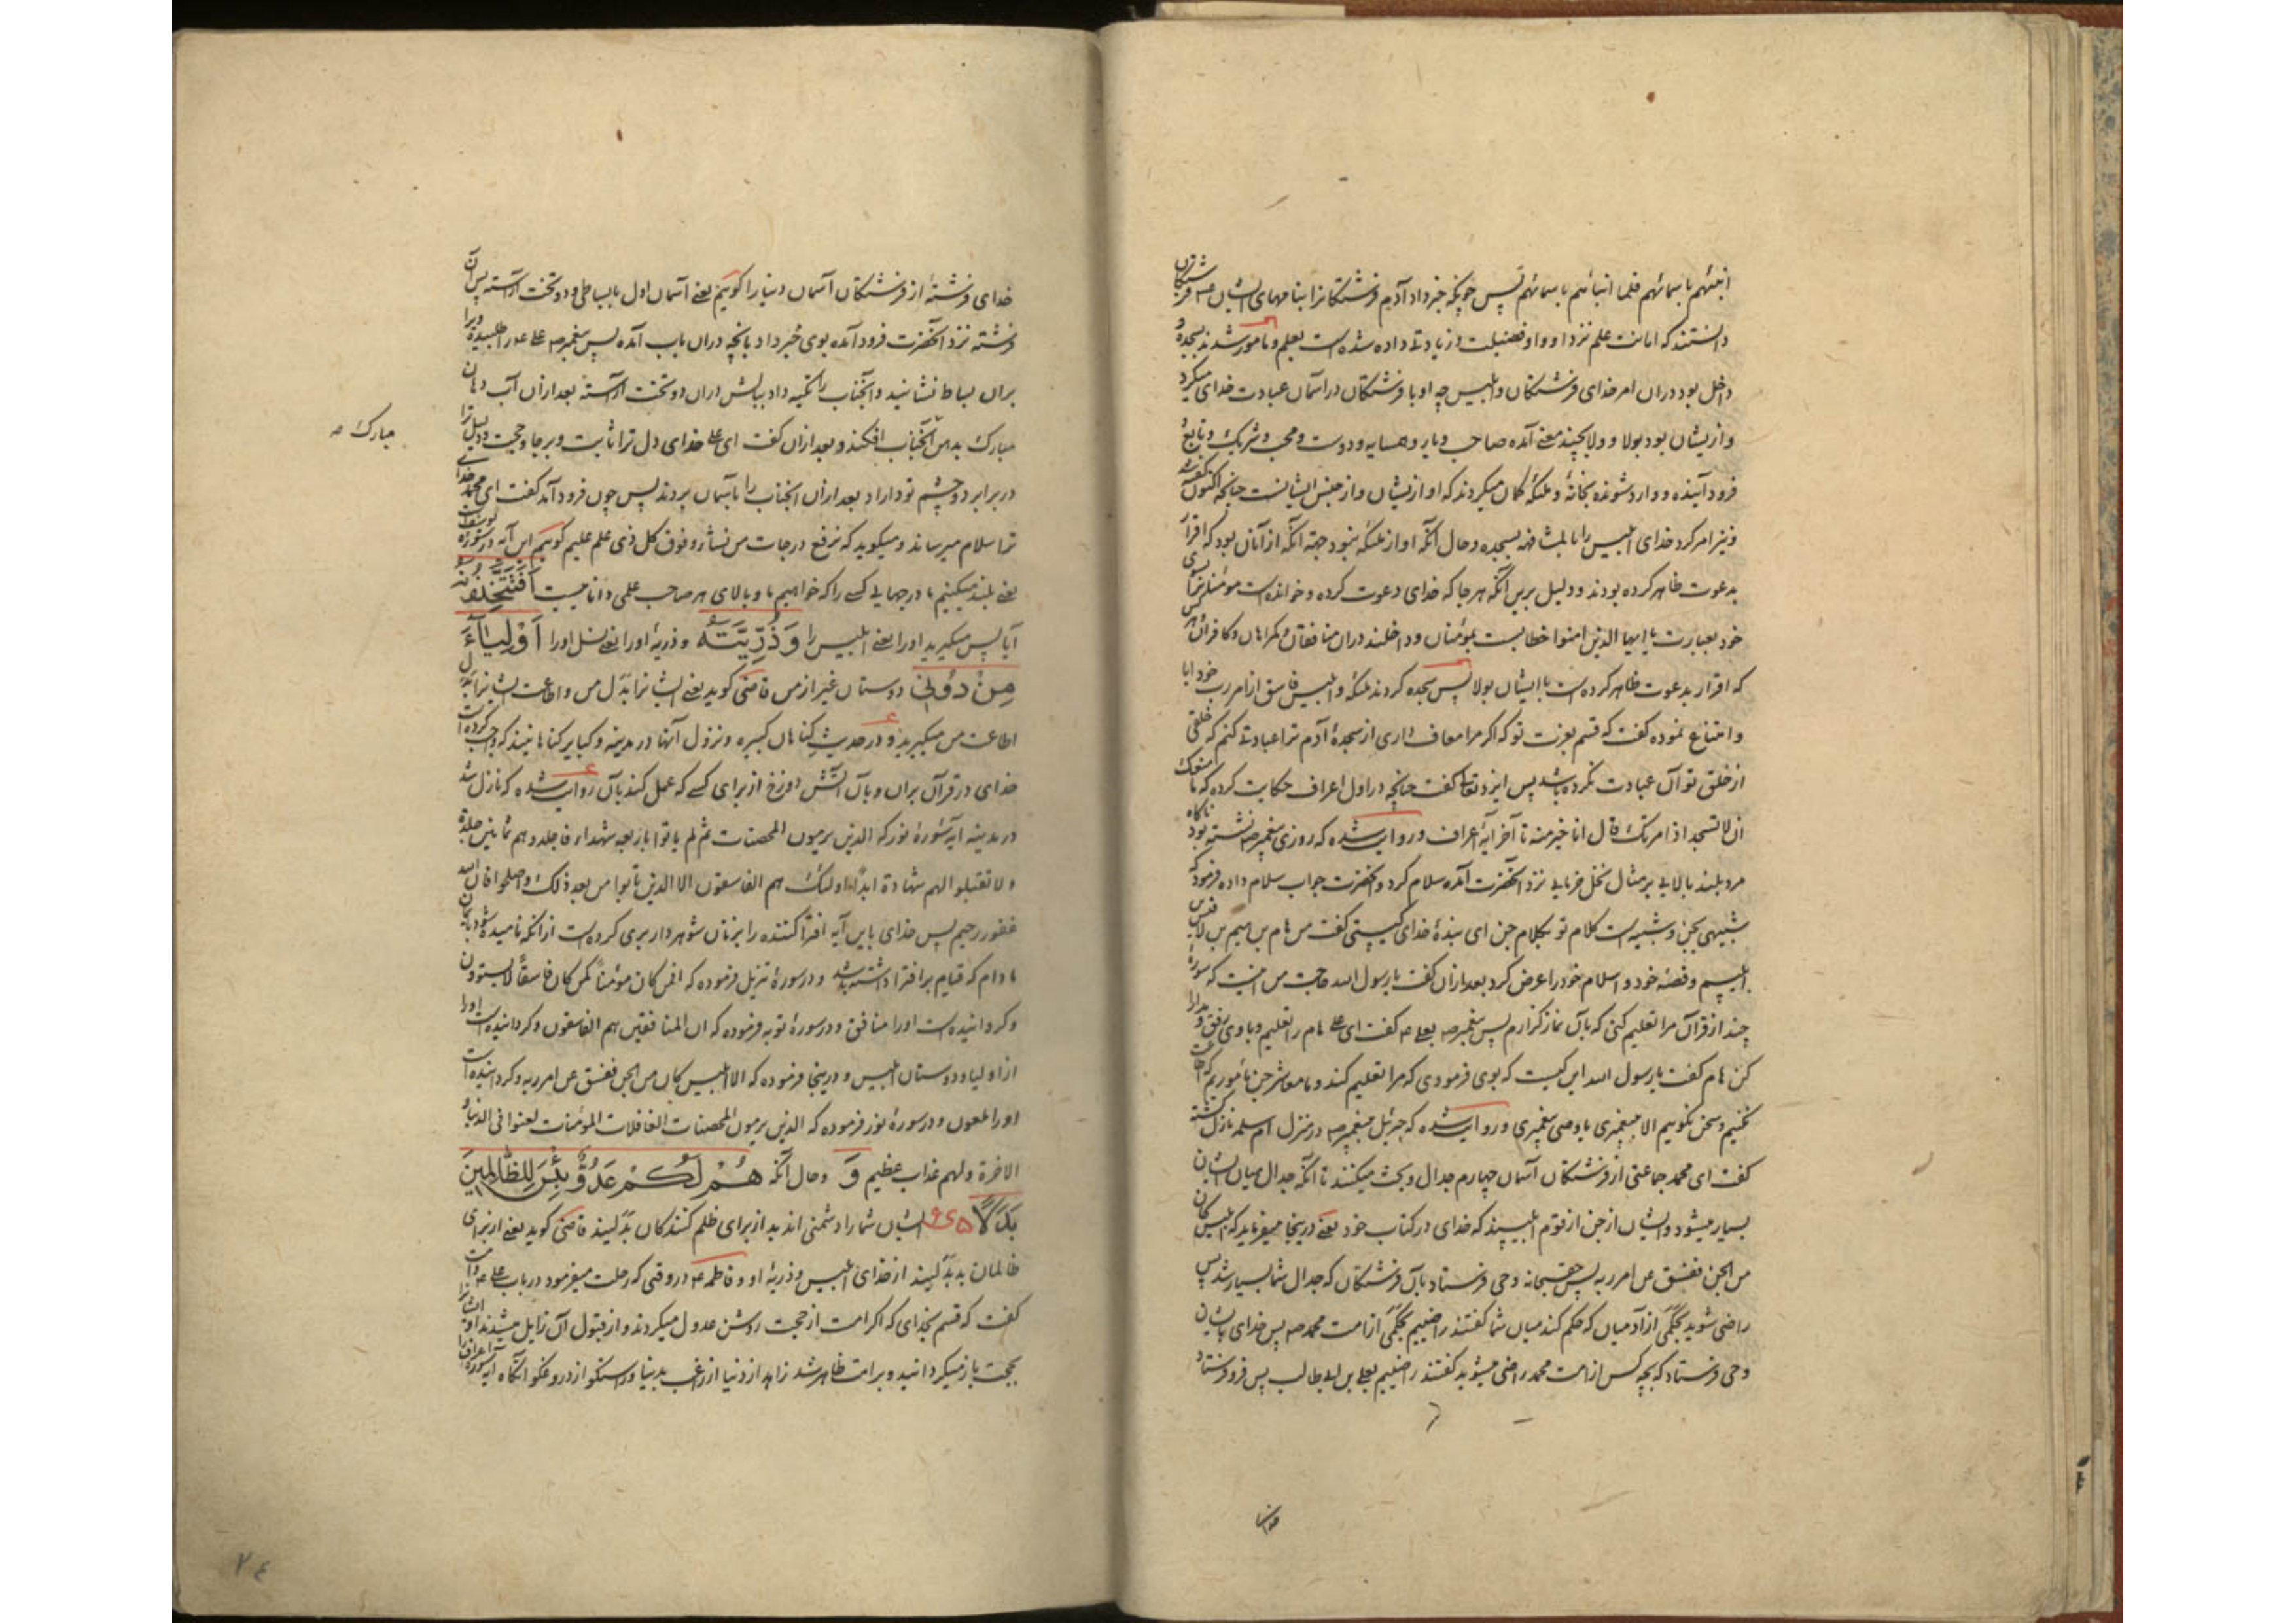 انبئهم باسمائهم فلما انبائهم باسمائهم پس چونکه خبر داد آدم فرشتکانرا بنامهای ایشان همه فرشتکان
دانستند که امانت علم نزد او و او فضیلت و زیادتے داده شده است بعلم و مامور شدند بسجدهٔ و
داخل بود در ان امر خدای فرشتکان و ابلیس چه او با فرشتکان در آسمان عبادت خدای میکرد
و ازیشان بود بولا و ولا بچند معنے آمده صاحب و یار و همسایه و دوست و محب و شریک و تابع و
فرود آینده و وارد شونده بخانهٔ و ملئکه کمان میکردند که او ازیشان و از جنس ایشانست چنانچه اکنون کفته شد
و نیز امر کرد خدای ابلیس را بالمشافهه بسجده و حال آنکه او از ملئکه نبود جهته آنکه از آنان بود که اقرار
بدعوت ظاهر کرده بودند و دلیل برین آنکه هر جا که خدای دعوت کرده و خوانده است مومنانرا بسوی
خود بعبارت یا ایها الذین امنوا خطابست بمومنان و داخلند دران منافقان و کمراهان و کافران هر کس
که اقرار بدعوت ظاهر کرده است با ایشان بولا پس سجده کردند ملئکه و ابلیس فاسق از امر رب خود ابا
و امتناع نموده کفت که قسم بعزت تو که اکر مرا معاف داری از سجدهٔ آدم ترا عبادتے کنم که خلقی
از خلق تو آن عبادت نکرده باشد پس ایزد تعالی کفت چنانچه در اول اعراف حکایت کرده که ما منعک
ان لا تسجد اذ امرتک قال انا خیر منه تا آخر آیهٔ اعراف و روایت شده که روزی پیغمبر صه نشسته بود ناکاه
مرد بلند بالایے بر مثال نخل خرمایے نزد آنحضرت آمده سلام کرد و آنحضرت جواب سلام داده فرمود که
شبیهی بجن و شبیه است کلام تو بکلام جن ای بندهٔ خدای کیستی کفت من هام بن هیم بن لاقیس بن
ابلیسم و قصهٔ خود و اسلام خود را عرض کرد بعد ازان کفت یا رسول الله حاجت من اینست که سورهٔ
چند از قرآن مرا تعلیم کنی که بآن نماز کزارم پس پیغمبر صه بعلے عه کفت ای علے هام را تعلیم و با وی رفق و مدارا
کن هام کفت یا رسول الله این کیست که بوی فرمودی که مرا تعلیم کند و ما معاشر جن ماموریم که اطاعت
نکنیم و سخن نکوییم الا پیغمبری یا وصی پیغمبری و روایت شده که جبرئیل بپیغمبر صه در منزل ام سلمه نازل کشته
کفت ای محمد جماعتی از فرشتکان آسمان چهارم جدال و بحث میکنند تا آنکه جدال میان ایشان
بسیار میشود و ایشان از جن از قوم ابلیسند که خدای در کتاب خود یعنے درینجا میفرماید که ابلیس کان
من الجن ففسق عن امر ربه پس حقسبحانه وحی فرستاد بآن فرشتکان که جدال شما بسیار شد پس
راضی شوید بحکمی از آدمیان که حکم کند میان شما کفتند راضییم بحکمی از امت محمد صه پس خدای بایشان
وحی فرستاد که بچه کس از امت محمد راضی میشوید کفتند راضییم بعلے بن ابے طالب پس فرو فرستاد
خدای
خدای فرشتهٔ از فرشتکان آسمان دنیا را کوییم یعنے آسمان اول با بساطی و دو تخت آراسته پس آن
فرشته نزد آنحضرت فرود آمده بوی خبر داد بآنچه دران باب آمده پس پیغمبر صه علے عه را طلبیده ویرا
بران بساط نشانید و آنجناب را تکیه داد ببالش دران دو تخت آراسته بعد ازان آب دهان
مبارک بدهن آنجناب افکند و بعد ازان کفت ای علے خدای دل ترا ثابت و برجا و حجت و دلیل ترا
مبارک صه
در برابر دو چشم تو داراد بعد ازان آنجناب را بآسمان بردند پس چون فرود آمد کفت ای محمد خدای
ترا سلام میرساند و میکوید که نرفع درجات من نشاء و فوق کل ذی علم علیم کوییم این آیه در سورهٔ یوسفست
یعنے بلند میکنیم ما درجهایے کسے را که خواهیم ما و بالای هر صاحب علمی دانا هیست اَفَتَتَّخِذُونَهُ
آیا پس میکیرید او را یعنے ابلیس را وَذُرِّیَّتَهُ و ذریهٔ او را یعنے نسل او را اَوْلِیَآءَ
مِنْ دُونِیْ دوستان غیر از من قاضی کوید یعنے ایشانرا بدل من و اطاعت ایشانرا بدل
اطاعت من میکیرید و در حدیث کناهان کبیره و نزول آنها در مدینه و کبایر کناهانیند که واجب کرده است
خدای در قرآن بران و بآن آتش دوزخ از برای کسے که عمل کند بآن روایت شده که نازل شد
در مدینه آیهٔ سورهٔ نور که الذین یرمون المحصنات ثم لم یاتوا باربعه شهداء فاجلدوهم ثمانین جلدة
و لا تقبلوا لهم شهادة ابدا و اولئک هم الفاسقون الا الذین تابوا من بعد ذلک و اصلحوا فان الله
غفور رحیم پس خدای باین آیه افترا کننده را بزنان شوهردار بری کرده است از آنکه نامیده شود بایمان
مادام که قیام بر افترا داشته باشد و در سورهٔ تنزیل فرموده که افمن کان مؤمنا کمن کان فاسقا لا یستوون
و کردانیده است او را منافق و در سورهٔ توبه فرموده که ان المنافقین هم الفاسقون و کردانیده است او را
از اولیا و دوستان ابلیس و درینجا فرموده که الا ابلیس کان من الجن ففسق عن امر ربه و کردانیده است
او را ملعون و در سورهٔ نور فرموده که الذین یرمون المحصنات الغافلات المؤمنات لعنوا فی الدنیا و
الآخرة و لهم عذاب عظیم وَ و حال آنکه هُمْ لَکُمْ عَدُوٌّ بِئْسَ لِلظَّالِمِینَ
بَدَلًا ایشان شما را دشمنی اند بد از برای ظلم کنندکان بدلیند قاضی کوید یعنے از برای
ظالمان بد بدلیند از خدای ابلیس و ذریهٔ او و فاطمه عه در وقتی که رحلت میفرمود در باب علے عه و امت
کفت که قسم بخدای که اکر امت از حجت روشن عدول میکردند و از قبول آن زایل میشدند او ایشانرا
بحجت باز میکردانید و بر امت ظاهر شد زاهد از دنیا از راغب بدنیا و راستکو از دروغکو آنکاه آیه سورهٔ اعراف را
۲٤